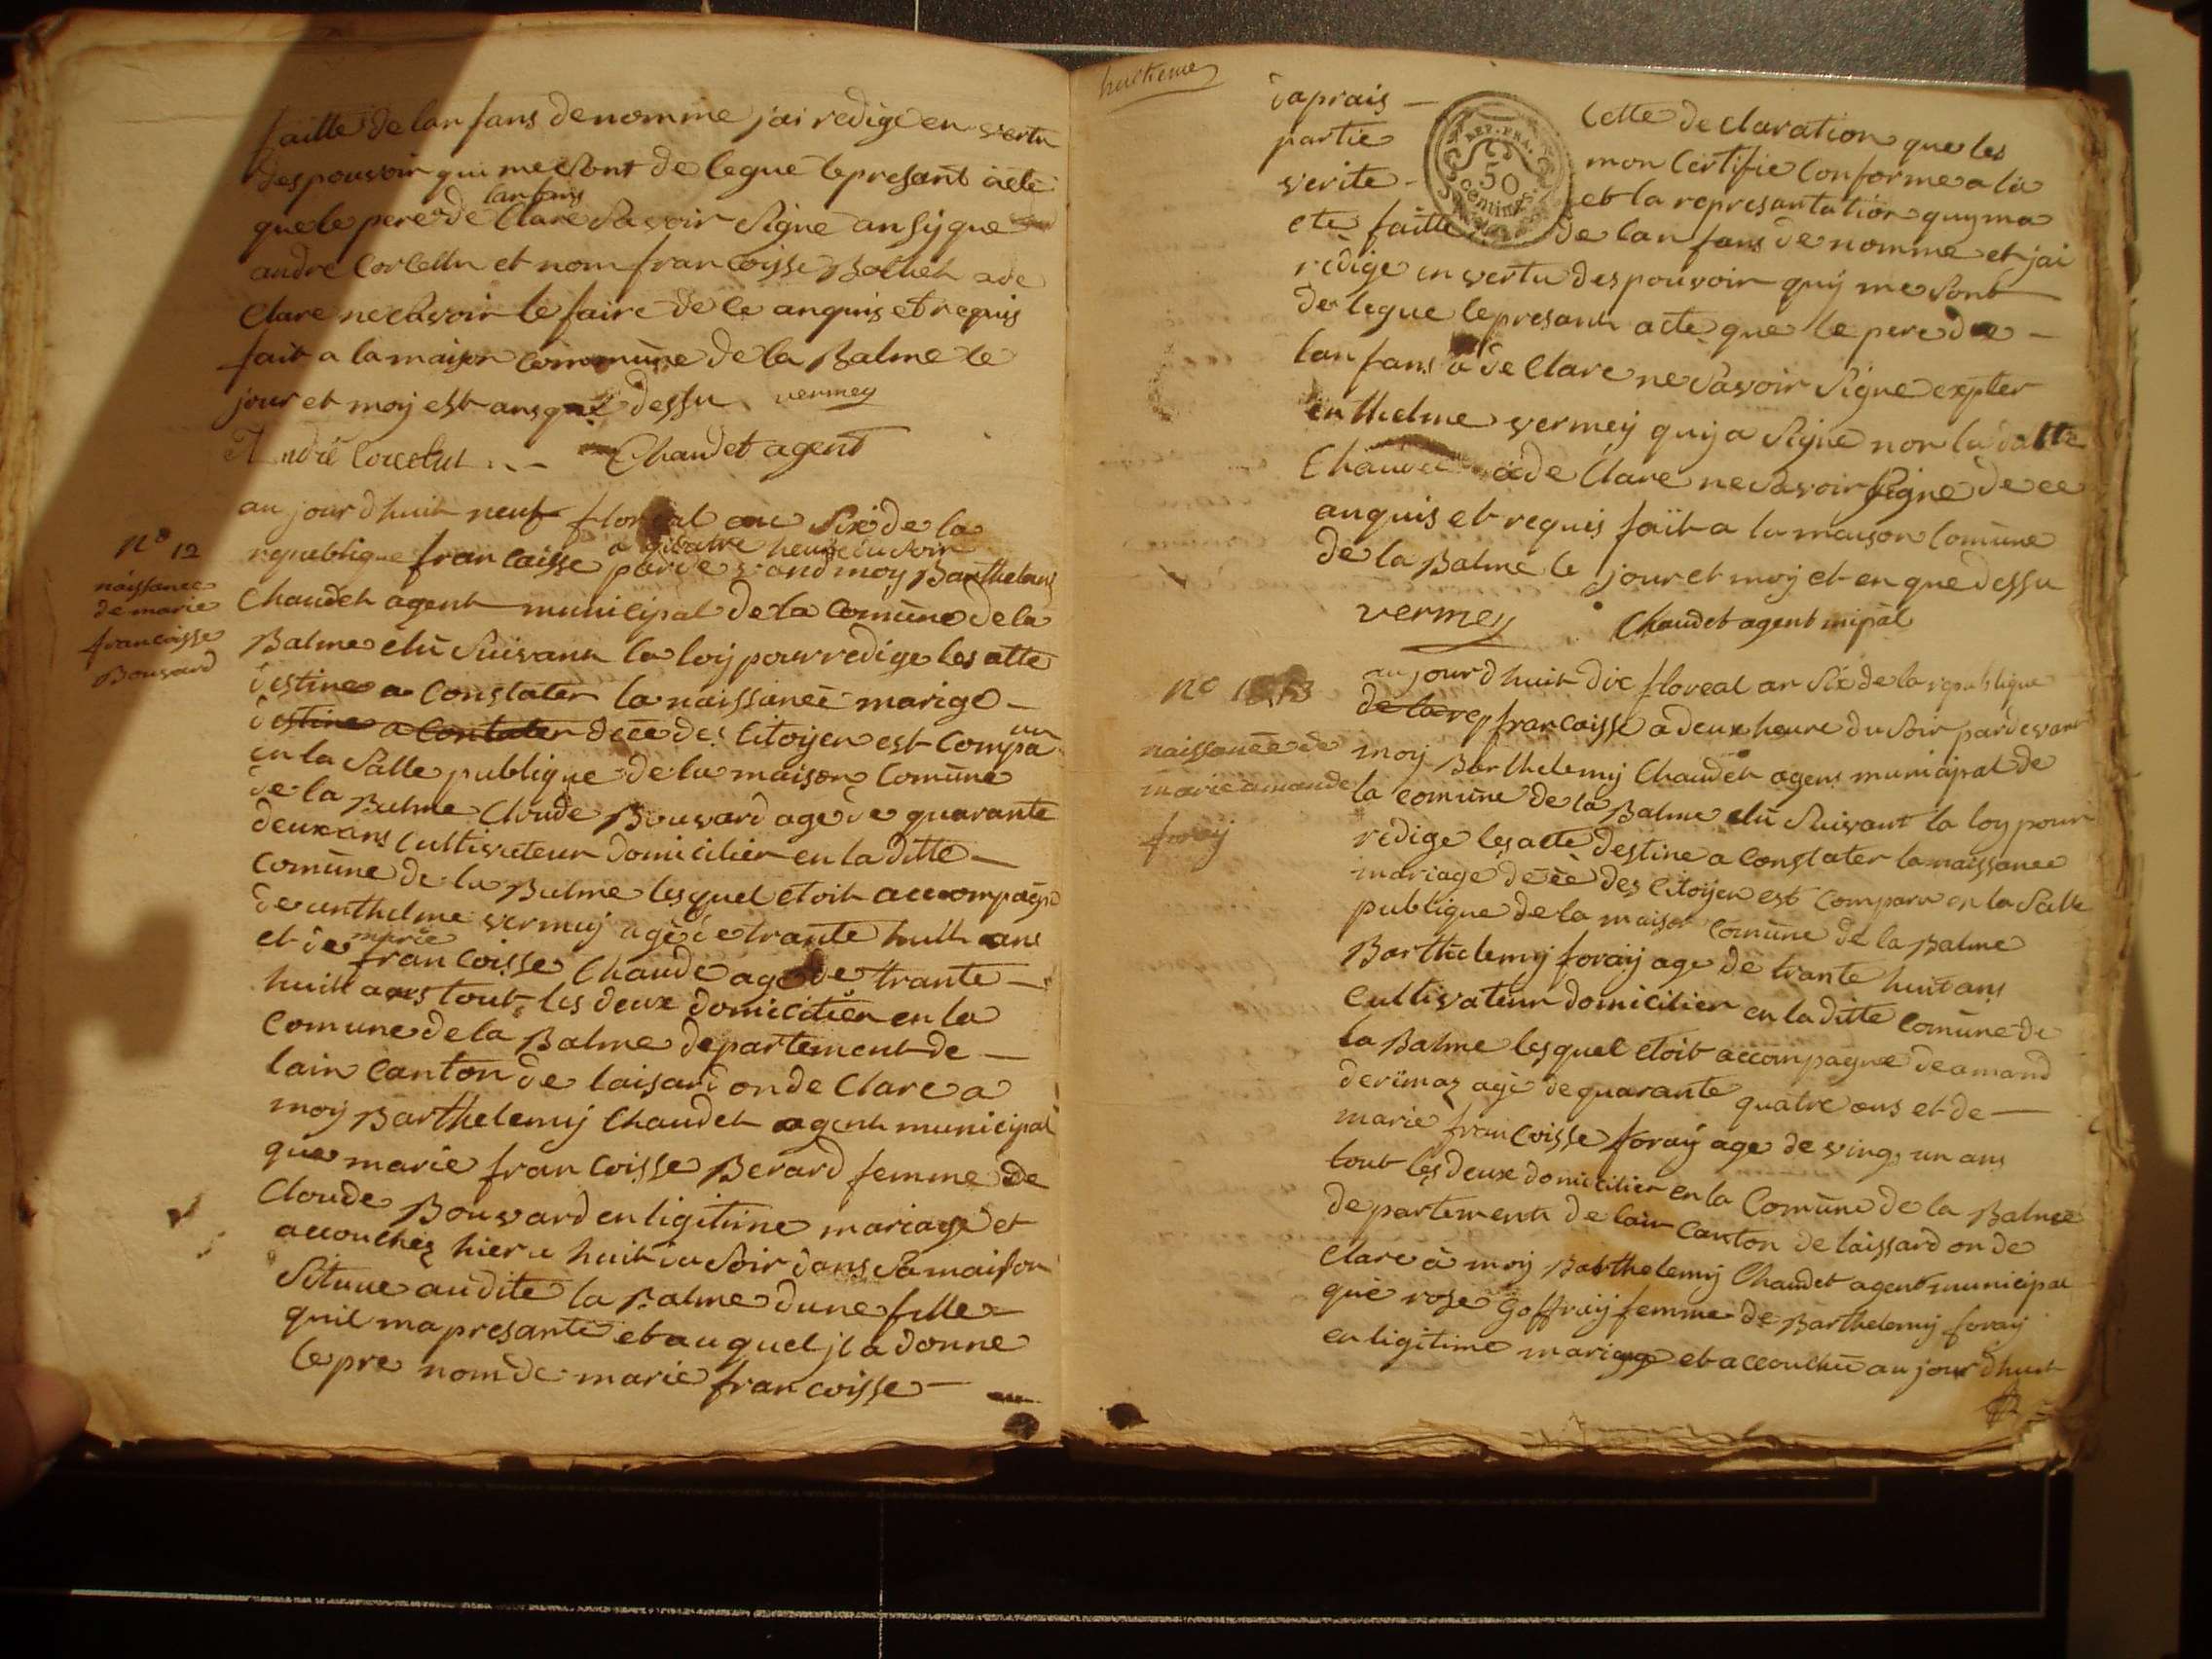 faitte de lanfans denomme jai redige en vertu
des pouvoir qui me sont de legue le presant acte
lanfans
que le pere de Clare savoir signe ansy que
andre Corcellu et nom francoisse Bolliet a de
Clare ne savoir le faire de ce anquis et requis
fait a la maison commune de la Balme le
jour et moy est ans que dessu vermey
André Corcelut Chaudet agent
nº 12
naissance
de marie
francoisse
Bouvard
au jourdhuit neuf floreal an Sixe de la
a quatre heure du soir
republique francaisse par de vand moy Barthelemy
Chaudet agent municipal de la Comune de la
Balme elu suivant la loy pour redige les atte
destine a Constater la naissance marige
destine a Contater decedes Citoyen est Comparu
en la Salle publique de la maison Comune
de la Balme Cloude Bouvard age de quarante
deux ans Cultivateur domicilier en la ditte
Comune de la Balme lesquel etoit accompagne
de anthelme vermey age de trante huit ans
marie
et de francoisse Chaude age de trante
huit ans tout les deux domicilier en la
Comune de la Balme departement de
lain Canton de laisard on de Clare a
moy Barthelemy Chaudet agent municipal
que marie francoisse Berard femme de
Cloude Bouvard en ligitime mariage et
accouchez hier a huit du Soir dans sa maison
Situue audite la Balme dune fille
quil ma presante et au quel jl a donne
le pre nom de marie francoisse
huitieme
REP. FRA.
50
centimes
daprais Cette declaration que les
partie mon Certifie Conforme a la
verite et la represantation quy ma
ete faitte de lanfans denomme et jai
redige en vertu des pouvoir quy me sont
de legue le presant acte que le pere de
lanfans a de Clare ne savoir signe expter
enthelme vermey quy a signe non la datte
Chaudet a de Clare ne savoir signe de ce
anquis et requis fait a la maison Comune
de la Balme le jour et moy et en que dessu
vermey Chaudet agent mipal
nº 13
naissance de
marie amande
foray
au jourdhuit dix floreal an Sixe de la republique
de la rep francaisse a deux heure du Soir par devant
moy Barthelemy Chaudet agens municipal de
la comune de la Balme elu suivant la loy pour
redige les atte destine a Constater la naissance
mariage décè des Citoyen est Comparu en la Salle
publique de la maison Comune de la Balme
Barthelemy foray age de trante huit ans
Cultivateur domicilier en la ditte Comune de
la Balme lesquel etoit accompagne de amand
derimaz age de quarante quatre ans et de
marie francoisse foray age de ving un ans
tout les deux domicilier en la Comune de la Balme
departement de lain Canton de laissard on de
Clare à moy Barthelemy Chaudet agent municipal
que rose Goffray femme de Barthelemy foray
en ligitime mariage et accouchue au jourdhuit